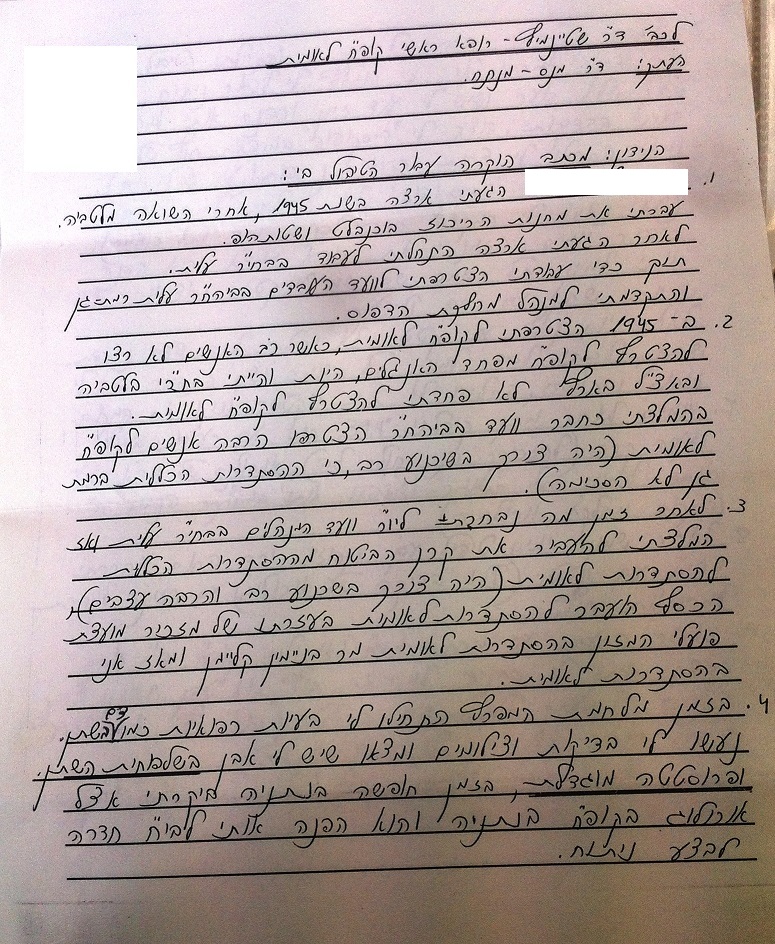 לכב' ד"ר שטיינמיץ - רופא ראשי קופ"ח לאומית
העתק: ד"ר מנס - מנתח.
הנידון: מכתב הוקרה עבור הטיפול בי:
1. הגעתי ארצה בשנת 1945, אחרי השואה מלטביה.
עברתי את מחנות הריכוז בוכנבלט ושטוטהוף.
לאחר הגעתי ארצה התחלתי לעבוד בבחי"ר עלית.
תוך כדי עבודתי הצטרפתי לוועד העובדים בביהח"ר עלית רמת-גן
והתקדמתי למנהל מחלקת הדפוס.
2. ב- 1945 הצטרפתי לקופ"ח לאומית, כאשר רב האנשים לא רצו
להצטרף לקופ"ח מפחד האנגלים, היות והייתי בח"י בלטביה
ובאצ"ל בארץ לא פחדתי להצטרף לקופ"ח לאומית.
בהמלצתי כחבר וועד בביהח"ר הצטרפו הרבה אנשים לקופ"ח
לאומית (היה צורך בשיכנוע רב, כי ההסתדרות הכללית ברמת
גן לא הסכימה).
3. לאחר זמן מה נבחרתי ליו"ר וועד המנהלים בבחי"ר עלית ואז
המלצתי להעביר את קרן הביטוח מההסתדרות הכללית
להסתדרות לאומית (היה צורך בשכנוע רב והרבה עצבים),
הכסף הועבר להסתדרות לאומית בעזרתו של מזכיר מועצת
פועלי המזון בהסתדרות לאומית מר בניימין קליימן ומאז אני
בהסתדרות לאומית.
4. בזמן מלחמת המפרץ התחילו לי בעיות רפואיות כמו דם בשתן.
נעשו לי בדיקות וצילומים ומצאו שיש לי אבן בשלפוחית השתן.
ופרוסטטה מוגדלת, בזמן חופשה בנתניה ביקרתי אצל
אורולוג בקופ"ח בנתניה והוא הפנה אותי לבי"ח חדרה
לבצע ניתוח.